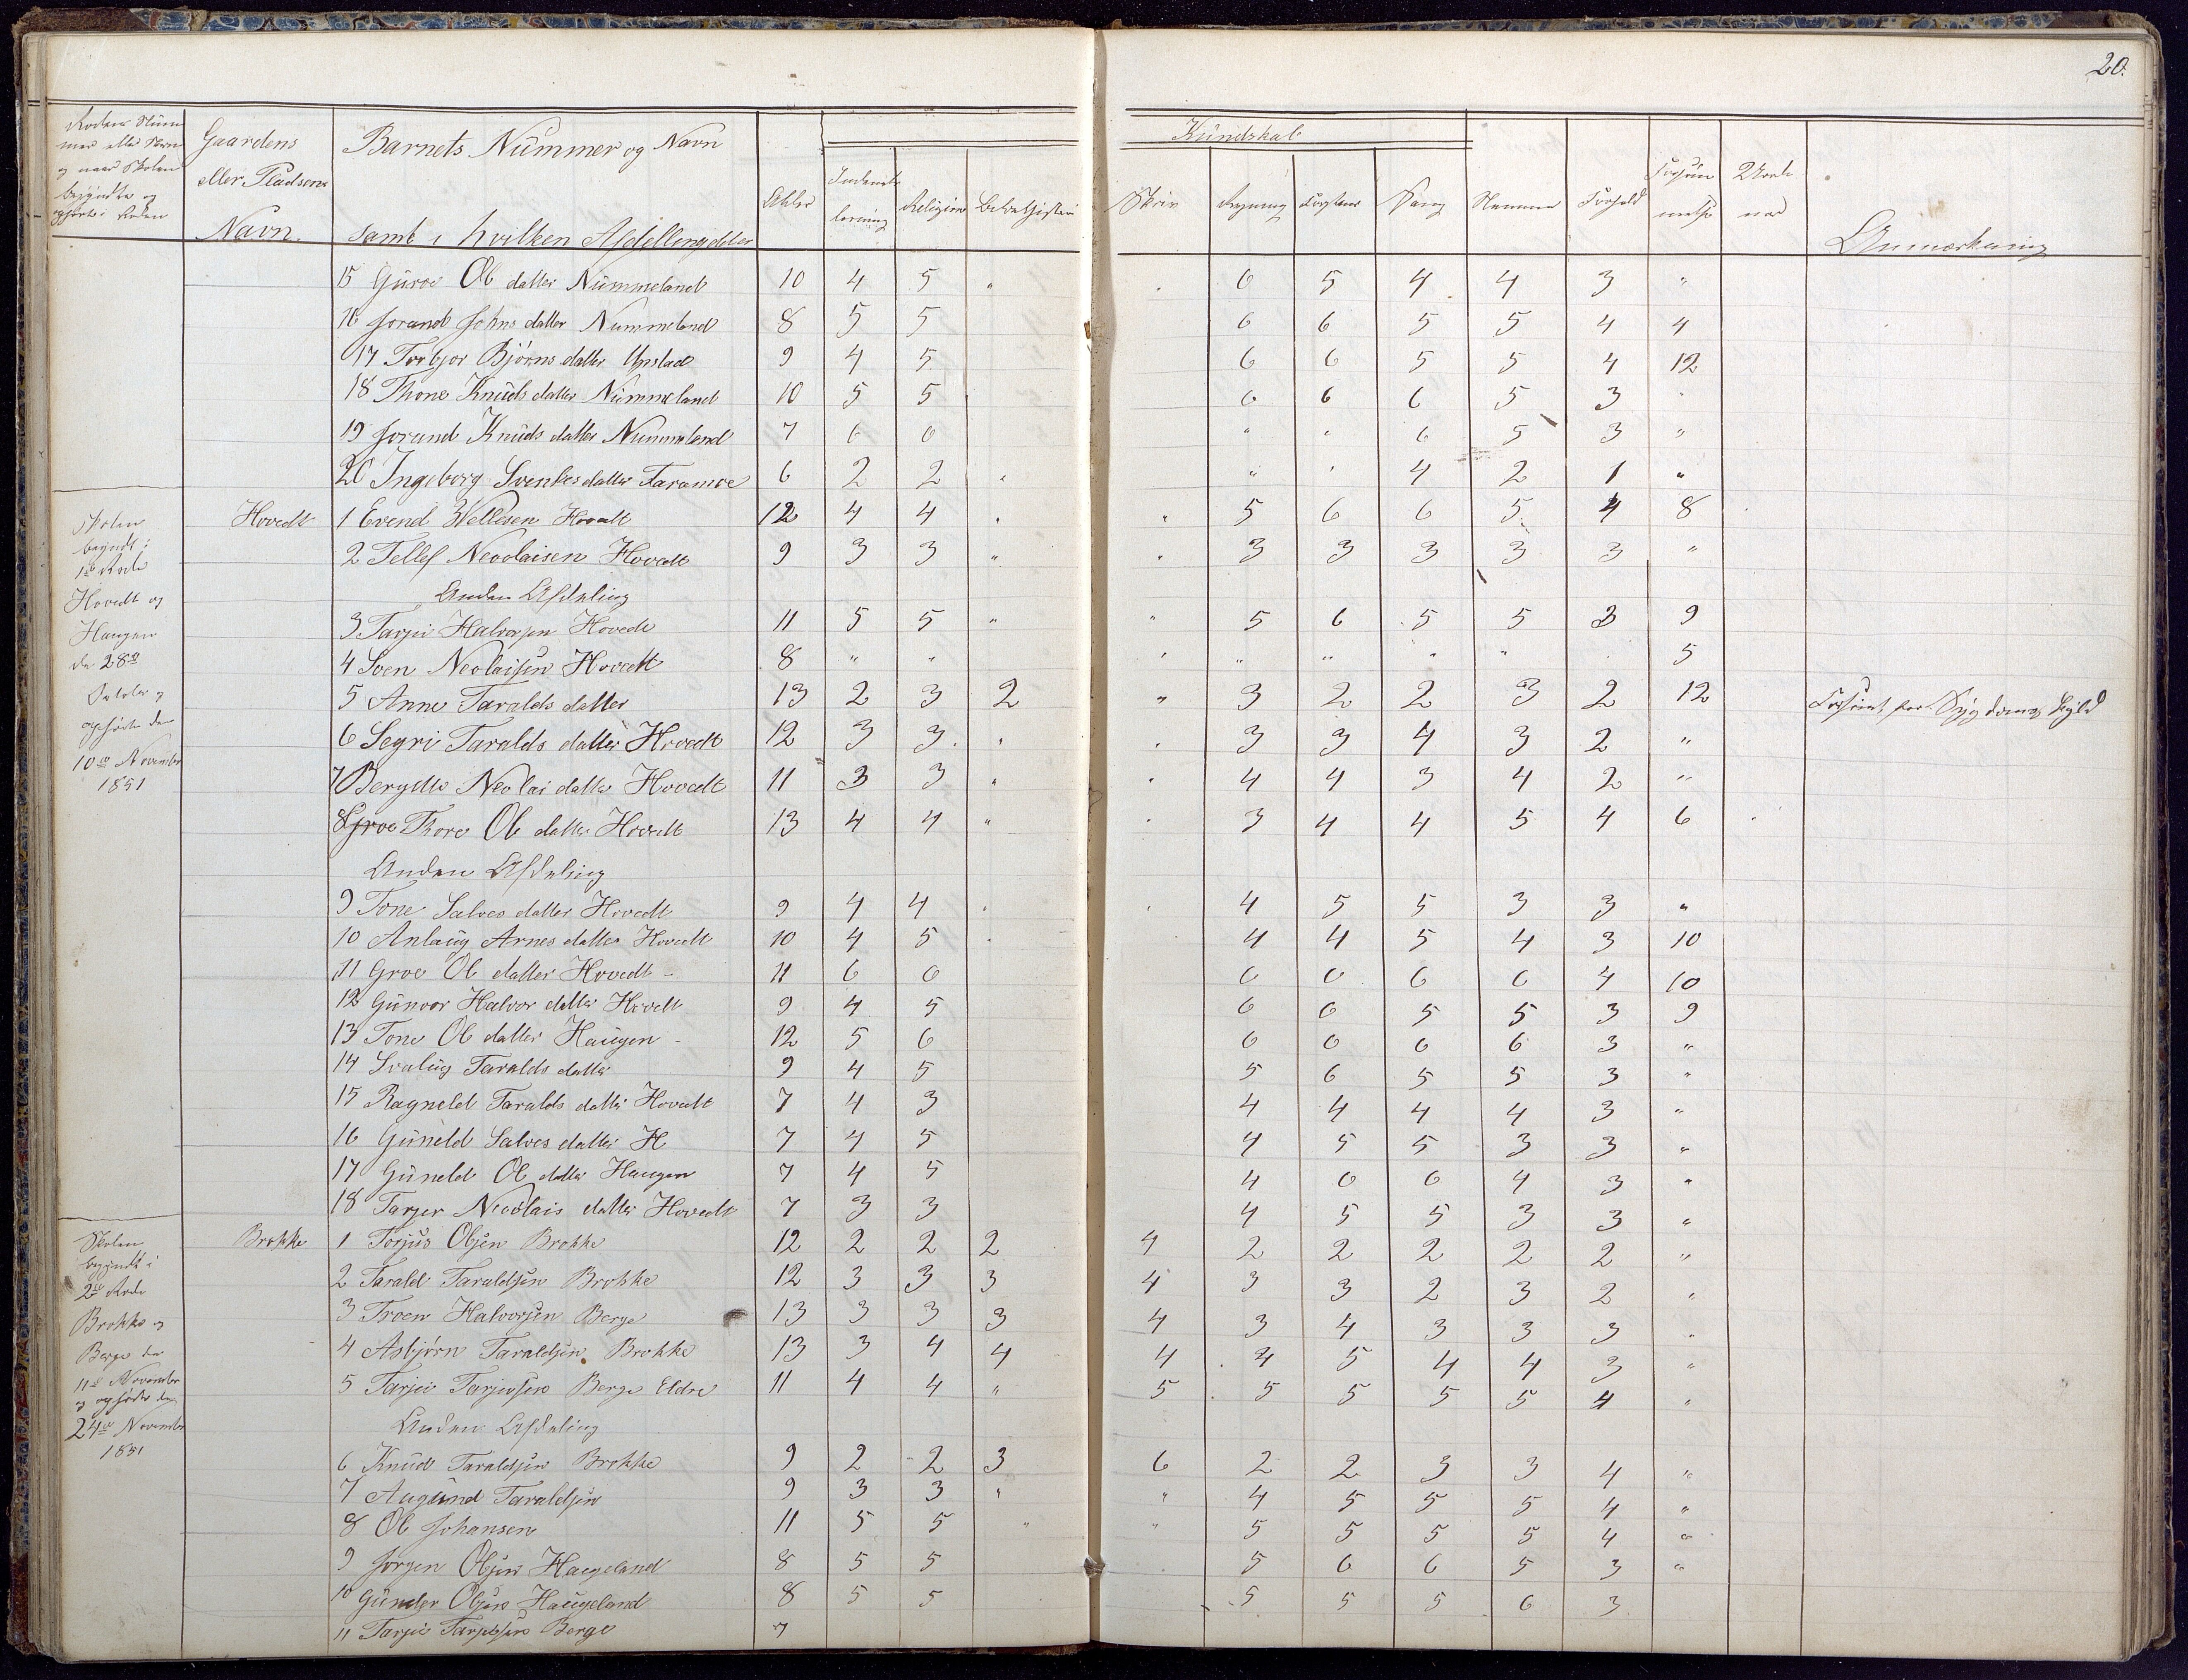 20.
Kundskab
Gaardens eller Pladsens Navn.
Barnets Nummer og Navn samt i hvilken Afdelling
Alder Religion
Skriv Sang Stemme Forhold
Anmærkning
15 Guroe Ol datter Nummeland 10 4 5 " 6 5 4 4 3 "
16 Jorand Johns datter Nummeland 8 5 5 6 6 5 5 4 4
17 Torbjor Bjørns datter Upstad 9 4 5 6 6 5 5 4 12
18 Thone Knuds datter Nummeland 10 5 5 6 6 6 5 3 "
19 Jorand Knuds datter Nummeland 7 6 6 " " 6 5 3 "
20 Ingeborg Svenkes datter Faramoe 6 2 2 " " " 4 2 1 "
Skolen begyndt i 1ste Rode Hovedt og Haugen den 28de October og ophørte den 10de November 1851
Hovedt
1 Evend Wellesen Hovedt 12 4 4 " " 5 6 6 5 4 8
2 Tellef Neoolaisen Hovedt 9 3 3 " " 3 3 3 3 3 "
Anden Afdeling
3 Tarjei Halvorsen Hovedt 11 5 5 " " 5 6 5 5 3 9
4 Sven Neolaisen Hovedt 8 " " " " " " " 5
5 Anne Taralds datter 13 2 3 2 " 3 2 2 3 2 12 Forsømt for Sygdoms Skyld
6 Segri Taralds datter Hovedt 12 3 3 " " 3 3 4 3 2 "
7 Bergdte Neolai datter Hovedt 11 3 3 " " 4 4 3 4 2 "
8 Thore Ol datter Hovedt 13 4 4 " " 3 4 4 5 4 6
Anden Afdeling
9 Tone Salves datter Hovedt 9 4 4 " " 4 5 5 3 3 "
10 Anlaug Arnes datter Hovedt 10 4 5 " 4 4 5 4 3 10
11 Groe Ol datter Hovedt 11 6 6 6 6 6 6 4 10
12 Gunvor Halvor datter Hovedt 9 4 5 6 6 5 5 3 9
13 Tone Ol datter Haugen 12 5 6 6 6 6 6 3 "
14 Svalug Taralds datter 9 4 5 5 6 5 5 3 "
15 Ragneld Taralds datter Hovedt 7 4 3 4 4 4 4 3 "
16 Guneld Salves datter H 7 4 5 4 5 5 3 3 "
17 Guneld Ol datter Haugen 7 4 5 4 6 6 4 3 "
18 Tarjer Neoolais datter Hovedt 7 3 3 4 5 5 3 3 "
Skolen begyndt i 2de Rode Brokke og Berge den 11te November og ophørte den 24de November 1851
Brokke
1 Torjus Olsen Brokke 12 2 2 2 4 2 2 2 2 2 "
2 Tarald Taraldsen Brokke 12 3 3 3 4 3 3 2 3 2 "
3 Troen Halvorsen Berge 13 3 3 3 4 3 4 3 3 3 "
4 Asbjørn Taraldsen Brokke 13 3 4 4 4 4 5 4 4 3 "
5 Tarjei Tarjeisen Berge Eldre 11 4 4 " 5 5 5 5 5 4 "
Anden Afdeling
6 Knud Taraldsen Brokke 9 2 2 3 6 2 2 3 3 4 "
7 Augund Taraldsen 9 3 3 " " 4 5 5 5 4 "
8 Ol Johansen 11 5 5 " " 5 5 5 5 4 "
9 Jørgen Olsen Haugeland 8 5 5 5 6 6 5 3 "
10 Gunder Olsen Haugeland 8 5 5 5 5 5 6 3
11 Tarjei Tarjeisen Berge 7